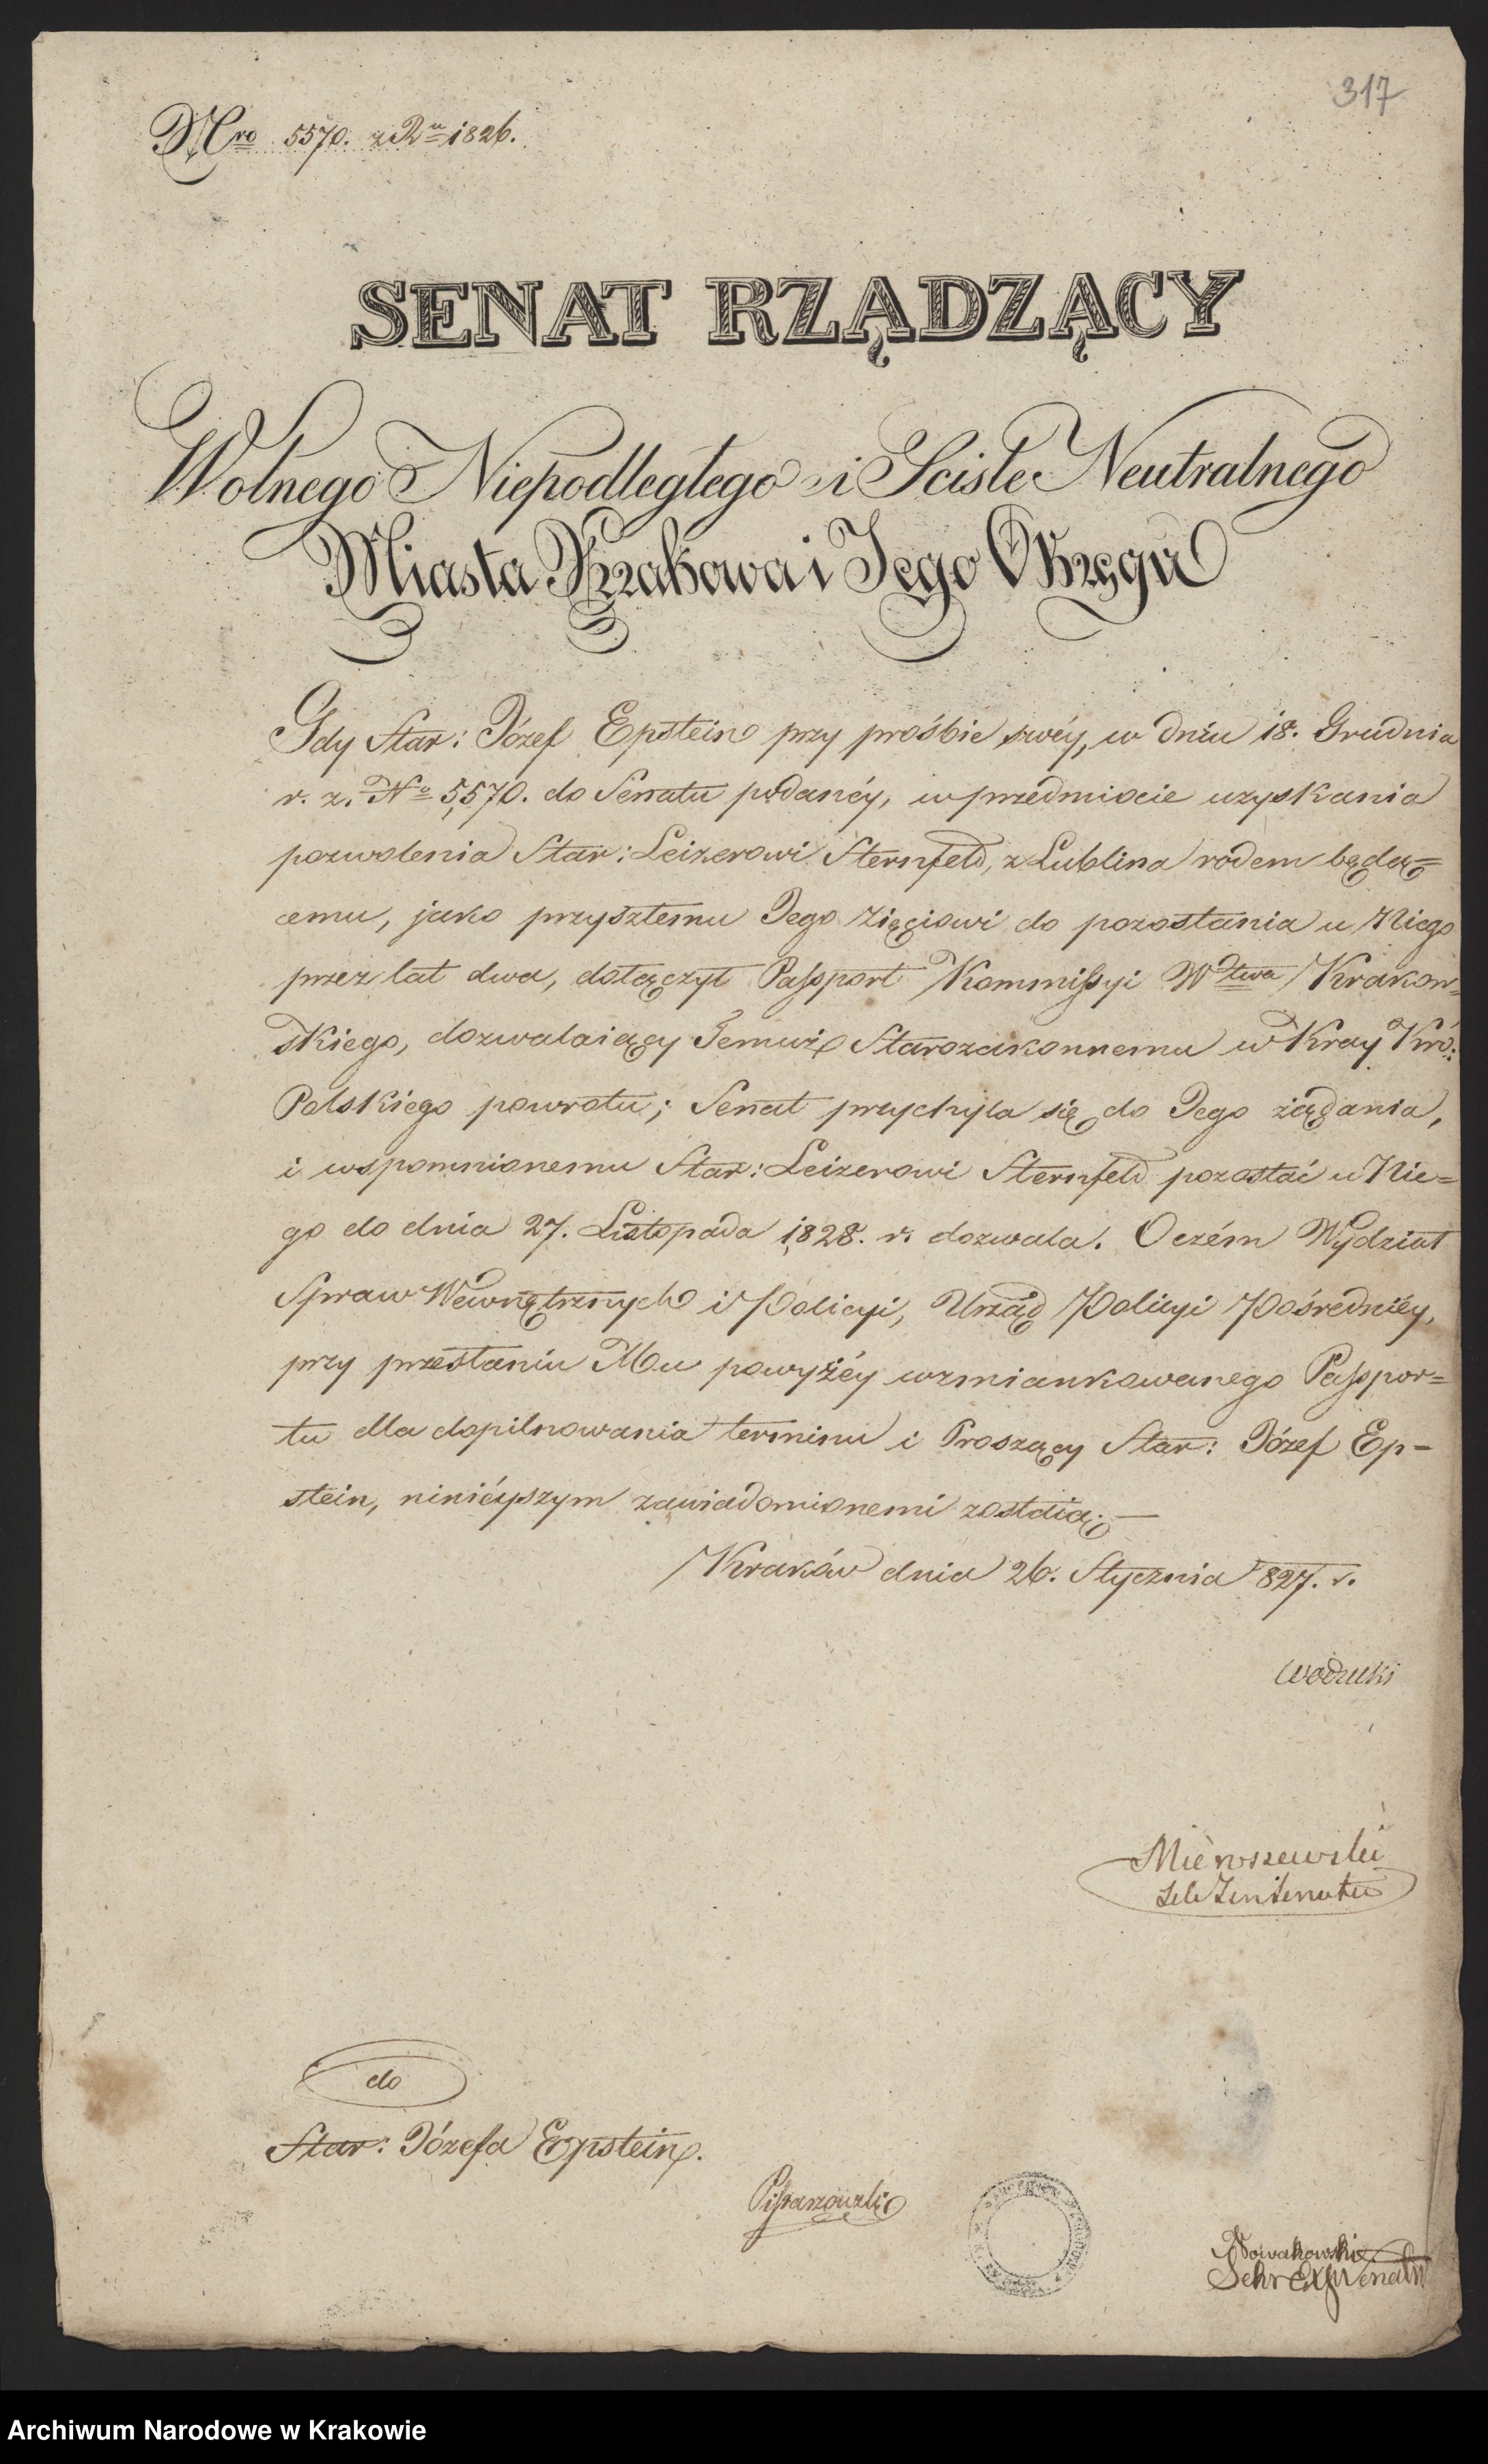 317
Nro 5570. z Ru 1826.
SENAT RZĄDZĄCY
Wolnego Niepodległego i Scisle Neutralnego
Miasta Krakowa i Jego Okręgu
Gdy Star: Józef Epstein przy prośbie swéy, w dniu 18. Grudnia
r. z. No 5,570. do Senatu podanéy, w przedmiocie uzyskania
pozwolenia Star: Leizerowi Sternfeld, z Lublina rodem będą=
cemu, jako przyszłemu Jego Zięciowi do pozostania u Niego
przez lat dwa, dołączył Passport Kommissyi Wdztwa Krakow=
skiego, dozwalaiący Jemuż Starozakonnemu w Kray Kró:
Polskiego powrotu; Senat przychyla się do Jego żądania,
i wspomnionemu Star: Leizerowi Sternfeld pozostać u Nie=
go do dnia 27. Listopada 1828. r. dozwala. O czém Wydział
Spraw Wewnętrznych i Policyi, Urząd Policyi Pośredniéy,
przy przesłaniu Mu powyżéy wzmiankowanego Passpor=
tu dla dopilnowania terminu i Proszący Star: Józef Ep-
stein, ninieyszym zawiadomionemi zostaią. —
Kraków dnia 26. Stycznia 827. r.
Wodzicki
Mieroszewski
Sek Jen Senatu
do
Star: Józefa Epstein.
Nowakowski
Sekr Exp Senatu
Archiwum Narodowe w Krakowie